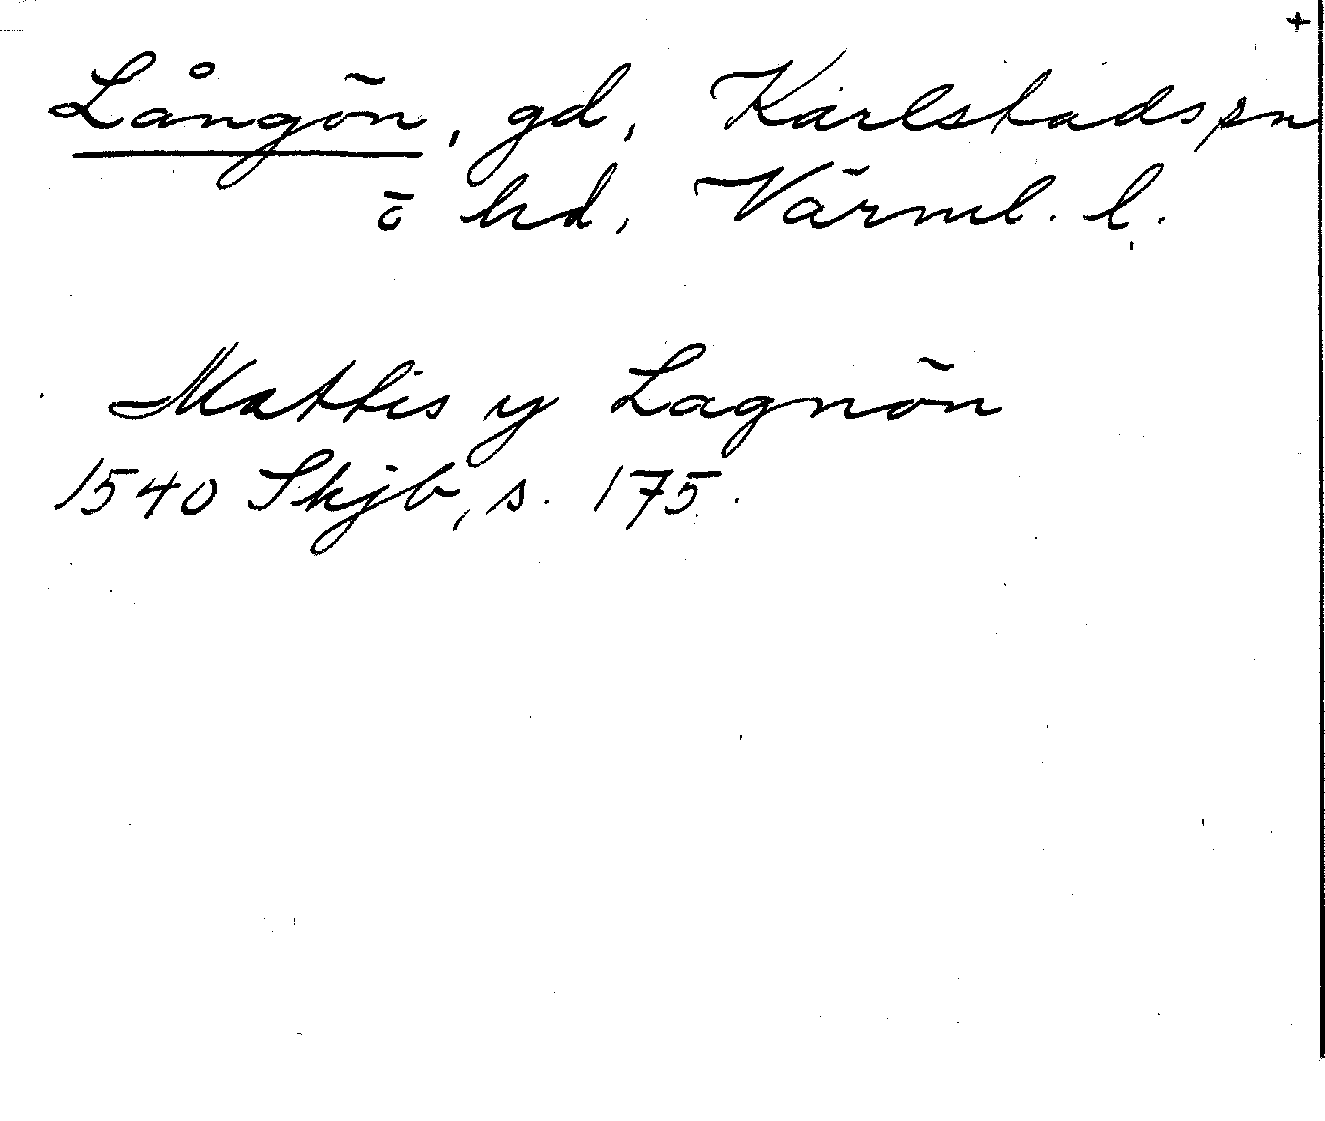 +
Långön, gd, Karlstads sn
ö hd, Värml. l.
Mattis y Lagnön
1540 Skjb, s. 175.